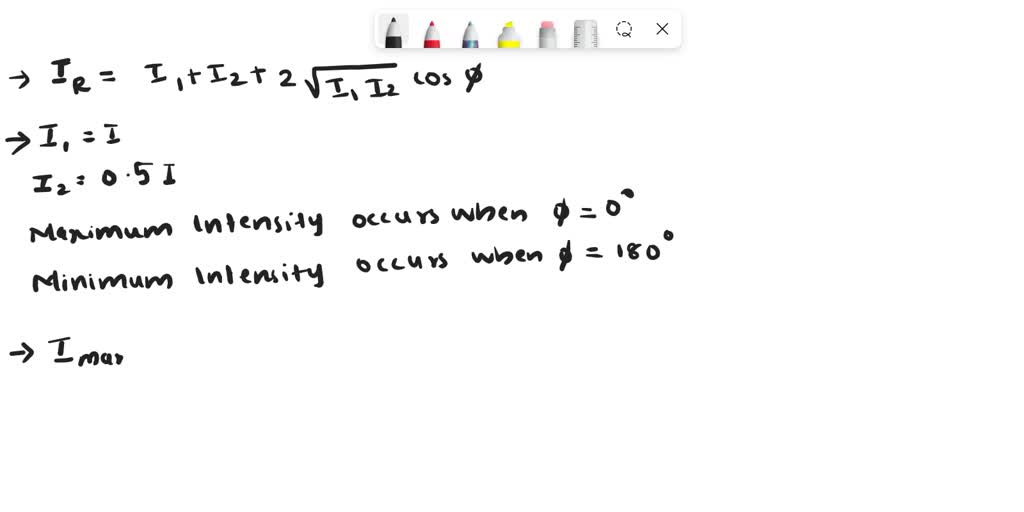 → I_R = I₁ + I₂ + 2 √(I₁ I₂) cos φ
→ I₁ = I
I₂ = 0.5 I
Maximum Intensity occurs when φ = 0°
Minimum Intensity occurs when φ = 180°
→ I max